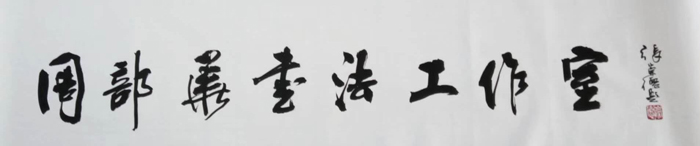 周部冀书法工作室